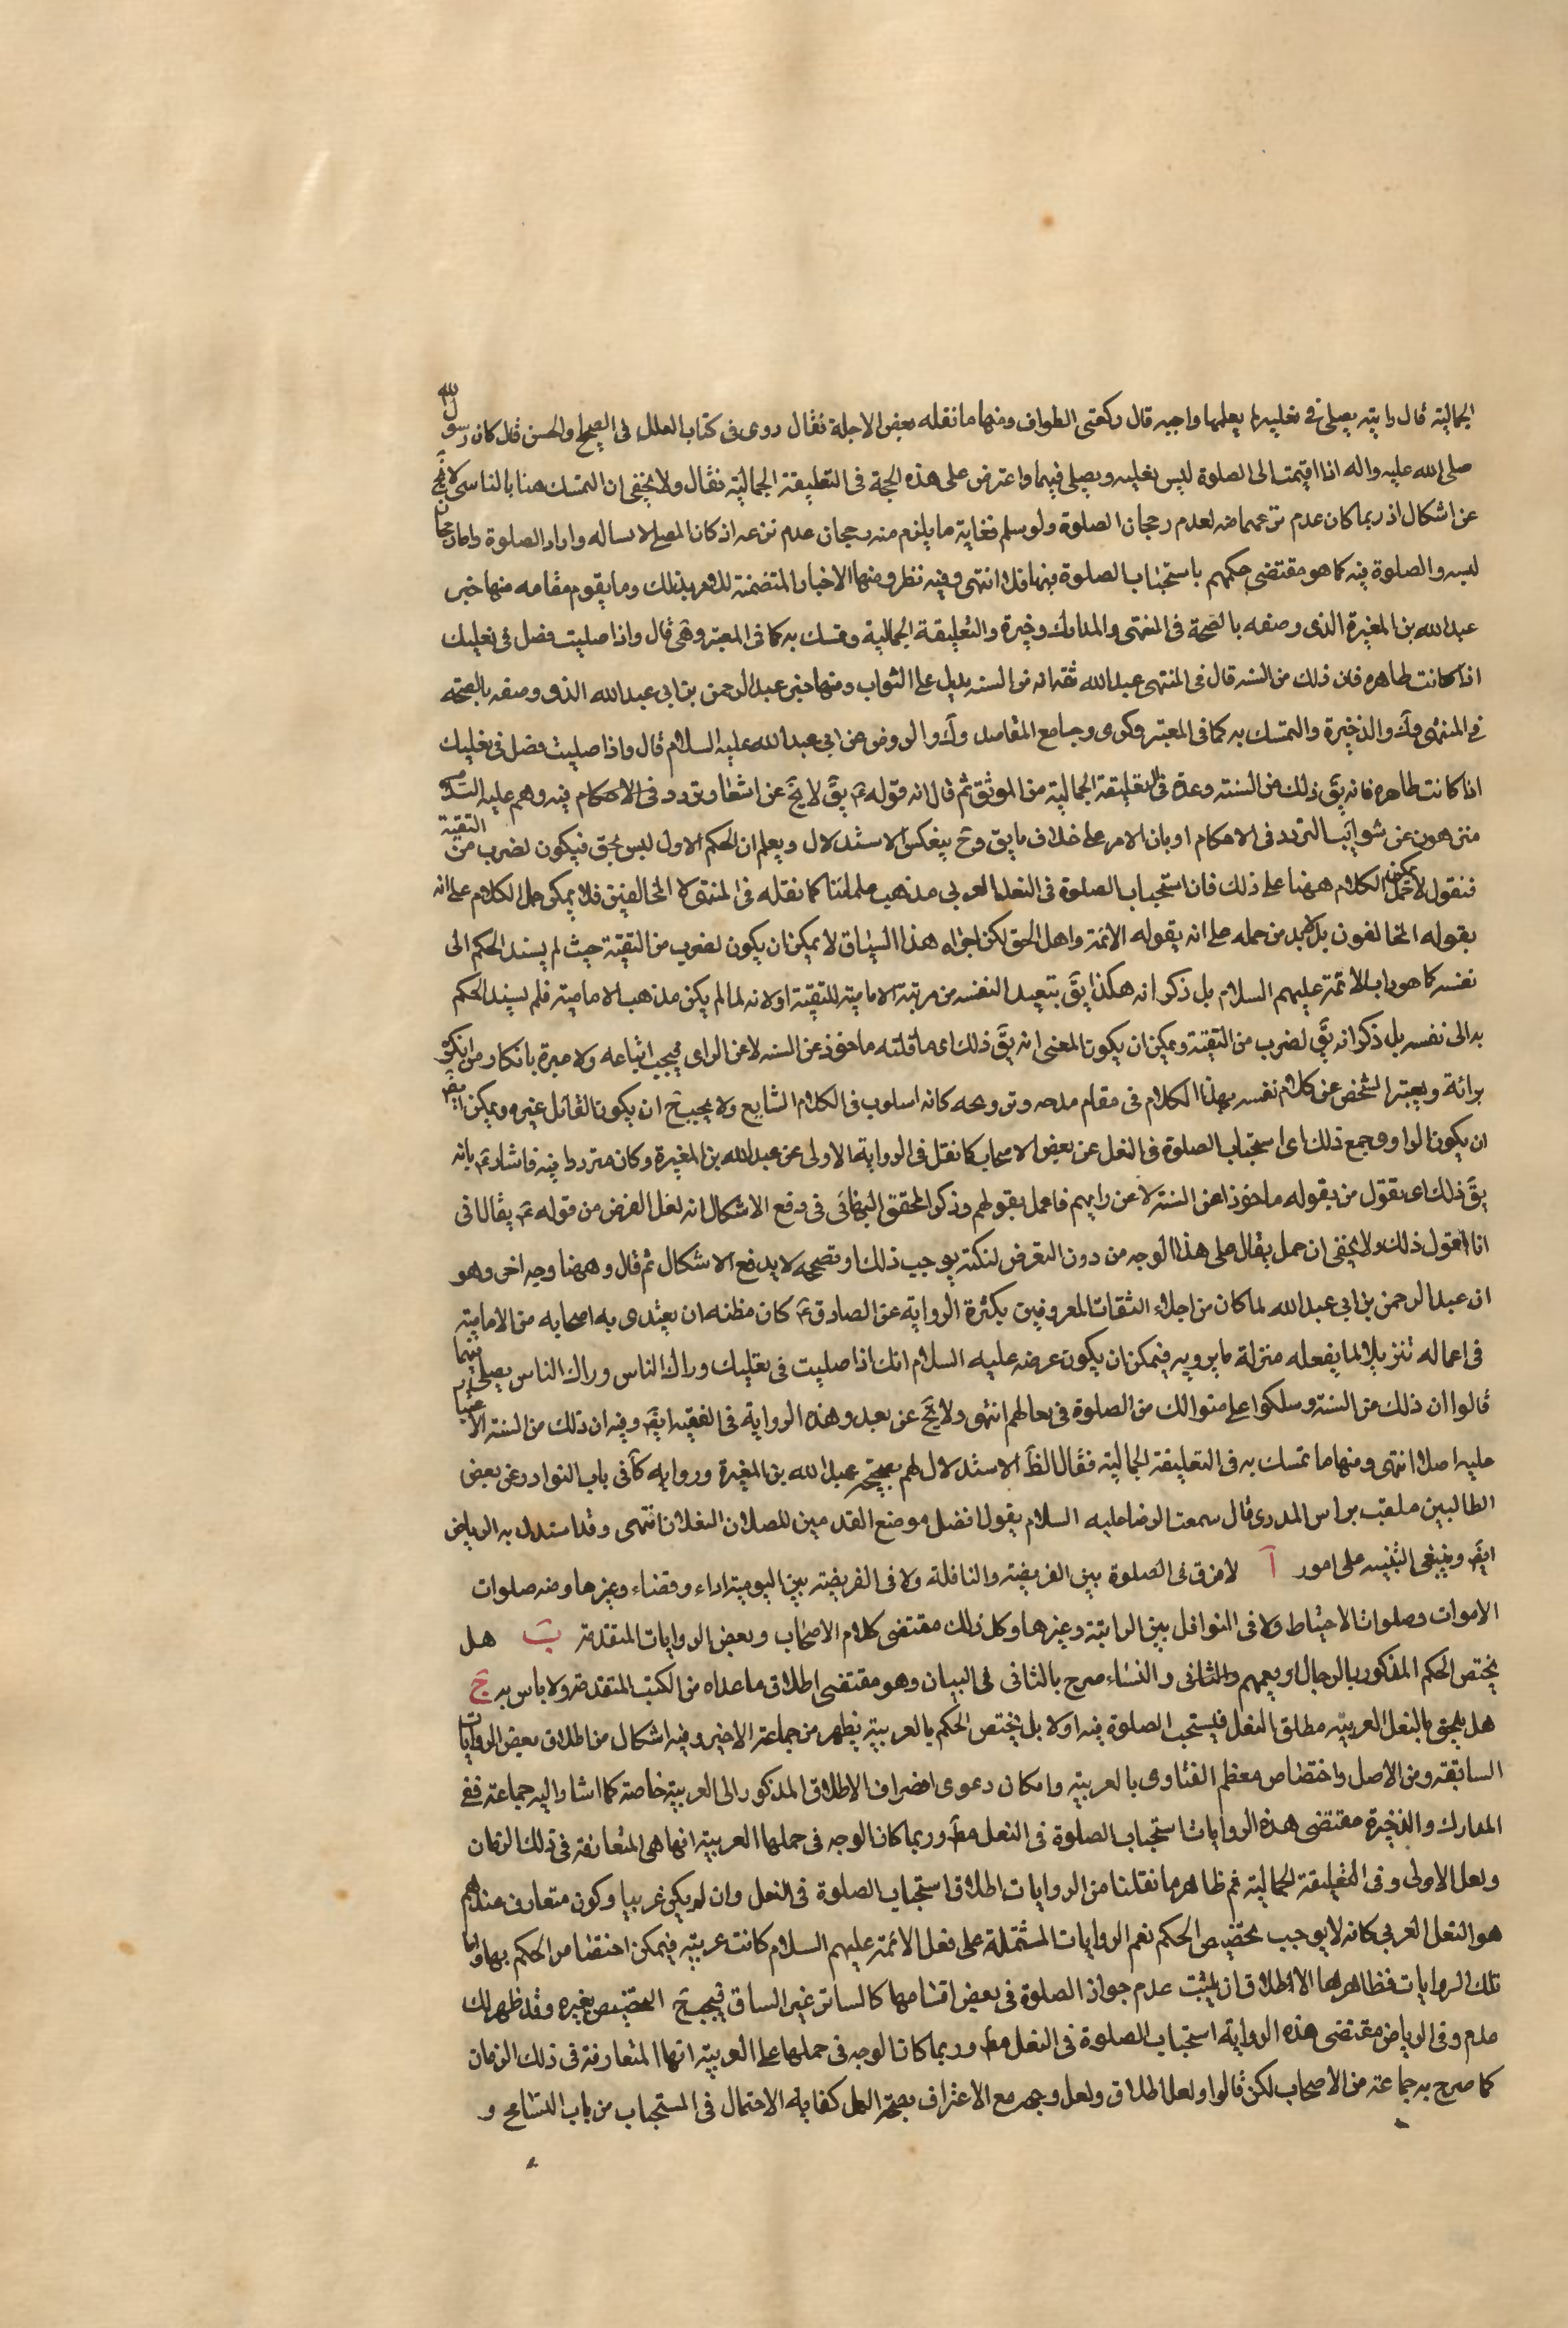 الجمالية قال رايته يصلي في نعليه لم يعلمها واجبه قال ركعتي الطواف ومنها ما نقله بعض الاجلة فقال روى في كتاب العلل في الصحيح والحسن قال كان رسول الله
صلى الله عليه واله اذا اقيمت الى الصلوة لبس نعليه ويصلي فيهما واعترض على هذه الحجة في التعليقة الجمالية فقال ولا يخفى ان التمسك هنا بالتاسي لا يخ
عن اشكال اذ ربما كان عدم نزعهما لعدم رجحان الصلوة ولو سلم فغاية ما يلزم منه رجحان عدم نزعه اذ كان المصلي لابسا له واراد الصلوة واما رجحان
لبسه والصلوة فيه كما هو مقتضى حكمهم باستحباب الصلوة فيها فلا انتهى وفيه نظر ومنها الاخبار المتضمنة للامر بذلك وما يقوم مقامه منها خبر
عبد الله بن المغيرة الذى وصفه بالصحة في المنتهى والمدارك وخيرة والتعليقة الجمالية وتمسك به كما في المعتبر وهى قال واذا صليت فصل في نعليك
اذا كانت طاهره فان ذلك من السنه قال في المنتهى عبد الله ثقه انه من السنه يدل على الثواب ومنها خبر عبد الرحمن بن ابي عبد الله الذى وصفه بالصحه
في المنتهى وك والذخيرة والتمسك به كما في المعتبر وكرى وجامع المقاصد وك والروض عن ابي عبد الله عليه السلام قال واذا صليت فصل في نعليك
اذا كانت طاهره فانه يق ذلك من السنته وعده في التعليقة الجمالية من الموثق ثم قال انه قوله ع يق لا يخ عن اشعار بتردد في الاحكام فيه وهم عليه السلام
منزهون عن شوائب التردد في الاحكام او بان الامر على خلاف ما يق وح ينعكس الاستدلال ويعلم ان الحكم الاول ليس بحق فيكون لضرب من التقية
فنقول لا يمكن حمل الكلام ههنا على ذلك فان استحباب الصلوة في النعل العربي مذهب علمائنا كما نقله في المنتهى لا المخالفين فلا يمكن حمل الكلام على انه
يقوله المخالفون بل لابد من حمله على انه يقوله الائمة واهل الحق لكن اجراه هذا السياق لا يمكن ان يكون لضرب من التقية حيث لم يسند الحكم الى
نفسه كما هو داب الائمة عليهم السلام بل ذكر انه هكذا يق بتبعيد النفسه من مرتبة الامامية للتقية او لانه لما لم يكن مذهب الامامية فلم يسند الحكم
به الى نفسه بل ذكر انه يق لضرب من التقية ويمكن ان يكون المعنى انه يق ذلك اى ما قلته ماخوذ عن السنه لا عن الراى فيجب اتباعه ولا عبرة بانكار من انكره
برائة ويعتبر الشخص عن كلام نفسه بهذا الكلام في مقام مدحه وترويحه كانه اسلوب في الكلام الشايع ولا يجب ح ان يكون القائل غيره ويمكن ايض
ان يكون الراوى جمع ذلك اى استحباب الصلوة في النعل عن بعض الاصحاب كما نقل في الرواية الاولى عن عبد الله بن المغيرة وكان مترددا فيه فاشار ع بانه
يق ذلك اى يقول من يقوله ماخوذا عن السنة لا عن رايهم فاعمل بقولهم وذكر المحقق البهائى في دفع الاشكال انه لعل الغرض من قوله ع يقال انى
انا اقول ذلك ولا يخفى ان حمل يقال على هذا الوجه من دون التعرض لنكتة يوجب ذلك او تصححه لا يدفع الاشكال ثم قال وههنا وجه اخر وهو
ان عبد الرحمن بن ابي عبد الله لما كان من اجلاء الثقات المعروفين بكثرة الرواية عن الصادق ع كان مظنه ان يقتدى به اصحابه من الامامية
في اعماله تنزيلا لما يفعله منزلة ما يرويه فيمكن ان يكون غرضه عليه السلام انك اذا صليت في نعليك وراك الناس وراك الناس يصلي فيهما
قالوا ان ذلك من السنة وسلكوا على منوالك من الصلوة في نعالهم انتهى ولا يخ عن بعد وهذه الرواية في الفقيه ايض وفيه ان ذلك من السنة
عليه اصلا انتهى ومنها ما تمسك به في التعليقة الجمالية فقال الظ الاستدلال لهم بصحيحة عبد الله بن المغيرة ورواية كا في باب النوادر عن بعض
الطالبين ملقب براس المدرى قال سمعت الرضا عليه السلام يقول افضل موضع القدمين للصلان النعلان انتهى وقد استدل به الرياض
ايض وينبغى التنبيه على امور آ لا فرق في الصلوة بين الفريضه والنافلة ولا في الفريضه بين اليومية اداء وقضاء وغيرها ومنه صلوات
الاموات وصلوات الاحتياط ولا في النوافل بين الراتبة وغيرها وكل ذلك مقتضى كلام الاصحاب وبعض الروايات المتقدمة ب هل
يختص الحكم المذكور بالرجال او يعمهم والثانى والنساء صرح بالثانى في البيان وهو مقتضى اطلاق ما عداه من الكتب المتقدمة ولا باس به ج
هل يلحق بالنعل العربيه مطلق النعل فليستحب الصلوة فيه اولا بل يختص الحكم بالعربيه يظهر من جماعة الاخير وفيه اشكال من اطلاق بعض الروايات
السابقة ومن الاصل واختصاص معظم الفتاوى بالعربيه وامكان دعوى انصراف الاطلاق المذكور الى العربية خاصة كما اشار اليه جماعة ففى
المدارك والذخيرة مقتضى هذه الروايات استحباب الصلوة في النعل مط وربما كان الوجه في حملها العربية انها هى المتعارفة في ذلك الزمان
ولعل الاولى وفي التعليقة الجمالية ثم ظاهر ما نقلنا من الروايات اطلاق استحباب الصلوة في النعل وان لم يكن عربيا وكون متعارف عندهم
هو النعل العربي كانه لا يوجب تخصيص الحكم نعم الروايات المشتملة على فعل الائمة عليهم السلام كانت عربيه فيمكن اختصاص الحكم بها واما
تلك الروايات فظاهرها الاطلاق ان لم يثبت عدم جواز الصلوة في بعض اقسامها كالساتر غير الساق فيجب ح التخصيص بغيره وقد ظهر لك
عدم وفي الرياض مقتضى هذه الرواية استحباب الصلوة في النعل مط وربما كان الوجه في حملها على العربيه انها المتعارفة في ذلك الزمان
كما صرح به جماعة من الاصحاب لكن قالوا ولعل اطلاق ولعل وجه مع الاعتراف بصحة العمل كفاية الاحتمال في المستحباب من باب التسامح و